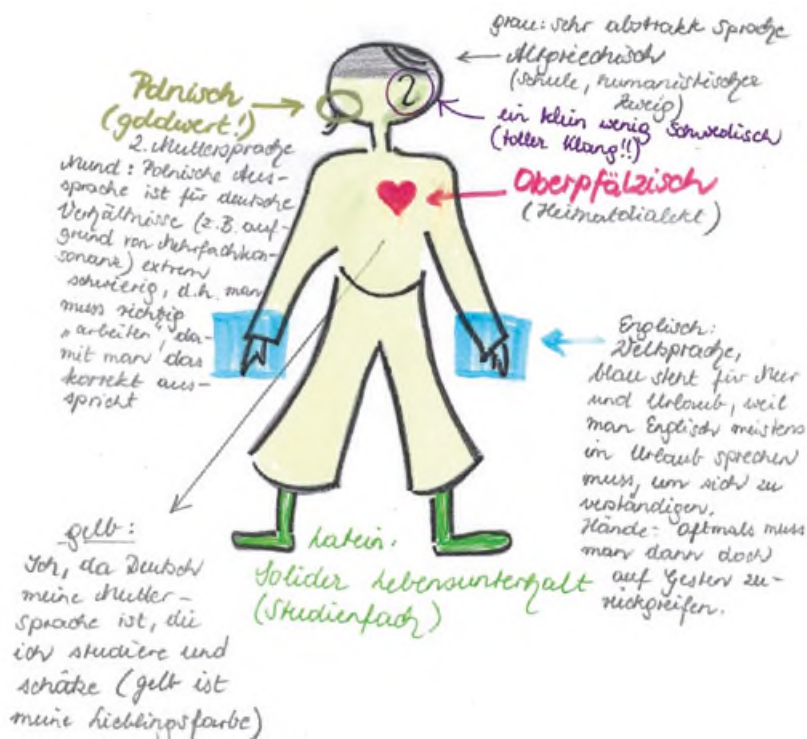 grau: sehr abstrakte Sprache
Altgriechisch
(Schule, humanistischer
Zweig)
ein klein wenig Schwedisch
(toller Klang!!)
Polnisch
(goldwert!)
2. Muttersprache
Mund: Polnische Aus-
sprache ist für deutsche
Verhältnisse (z.B. auf-
grund von Mehrfachkon-
sonanz) extrem
schwierig, d.h. man
muss richtig
„arbeiten“, da-
mit man das
korrekt aus-
spricht
Oberpfälzisch
(Heimatdialekt)
Englisch:
Weltsprache,
blau steht für Meer
und Urlaub, weil
man Englisch meistens
im Urlaub sprechen
muss, um sich zu
verständigen.
Hände: oftmals muss
man dann doch
auf Gesten zu-
rückgreifen.
gelb:
Ich, da Deutsch
meine Mutter-
sprache ist, die
ich studiere und
schätze (gelb ist
meine Lieblingsfarbe)
Latein:
Solider Lebensunterhalt
(Studienfach)